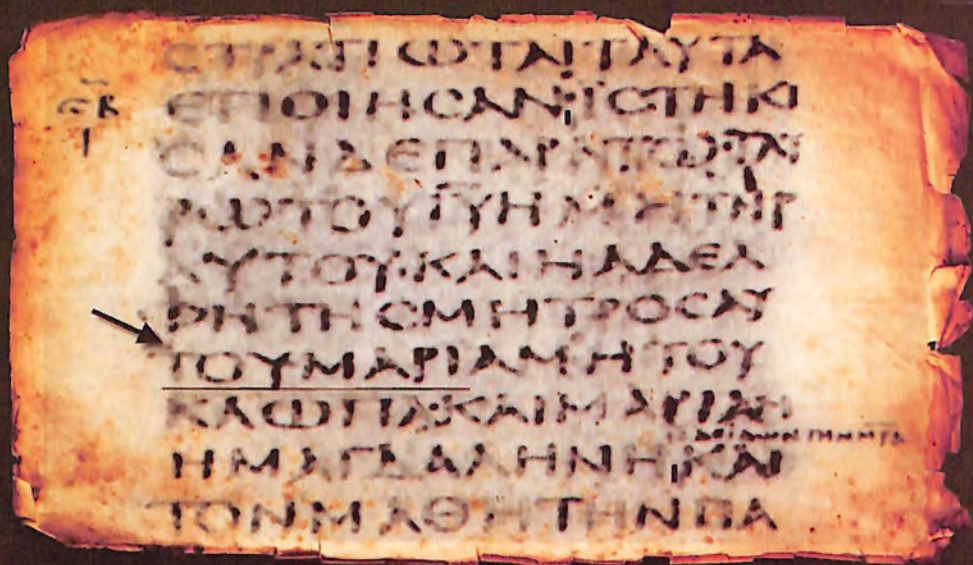 ϹΤΡΑΤΙΩΤΑΙΤΑΥΤΑ
ΕΠΟΙΗϹΑΝ ΙϹΤΗΚΙ
ϹΑΝΔΕΠΑΡΑΤΩϹΤΑΥ
ΡΩΤΟΥΙΥΗΜΗΤΗΡ
ΑΥΤΟΥ·ΚΑΙΗΑΔΕΛ
ΦΗΤΗϹΜΗΤΡΟϹΑΥ
ΤΟΥΜΑΡΙΑΜΗΤΟΥ
ΚΛΩΠΑ·ΚΑΙΜΑΡΙΑΜ
ΗΜΑΓΔΑΛΗΝΗ ΚΑΙ
ΤΟΝΜΑΘΗΤΗΝΠΑ